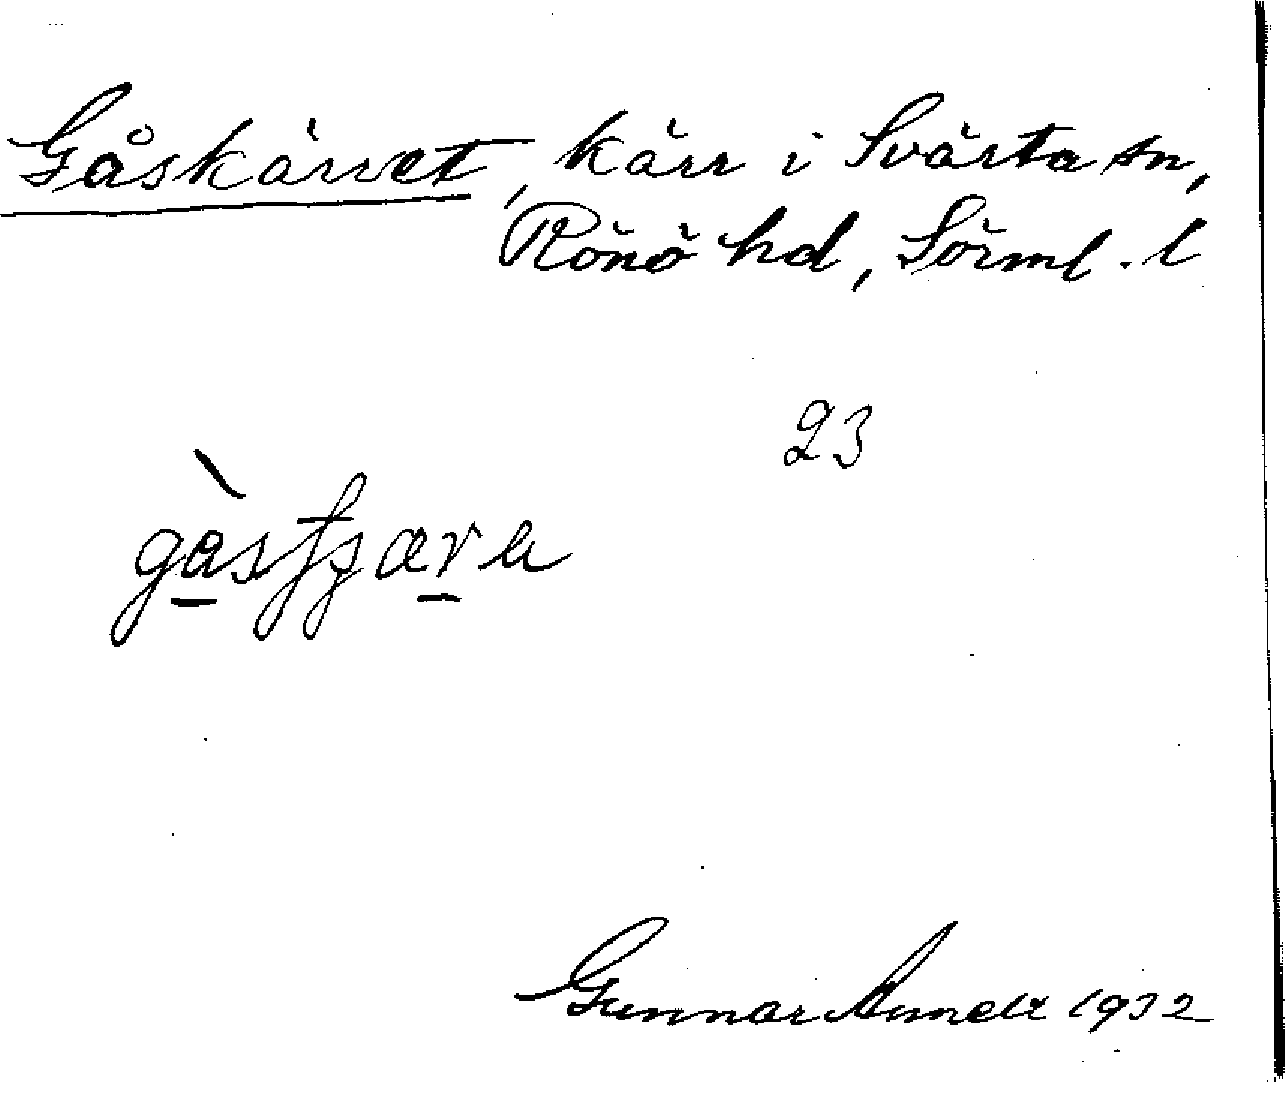 Gåskärret, kärr i Svärta sn,
Rönö hd, Sörml. l
23
Gunnar 1932